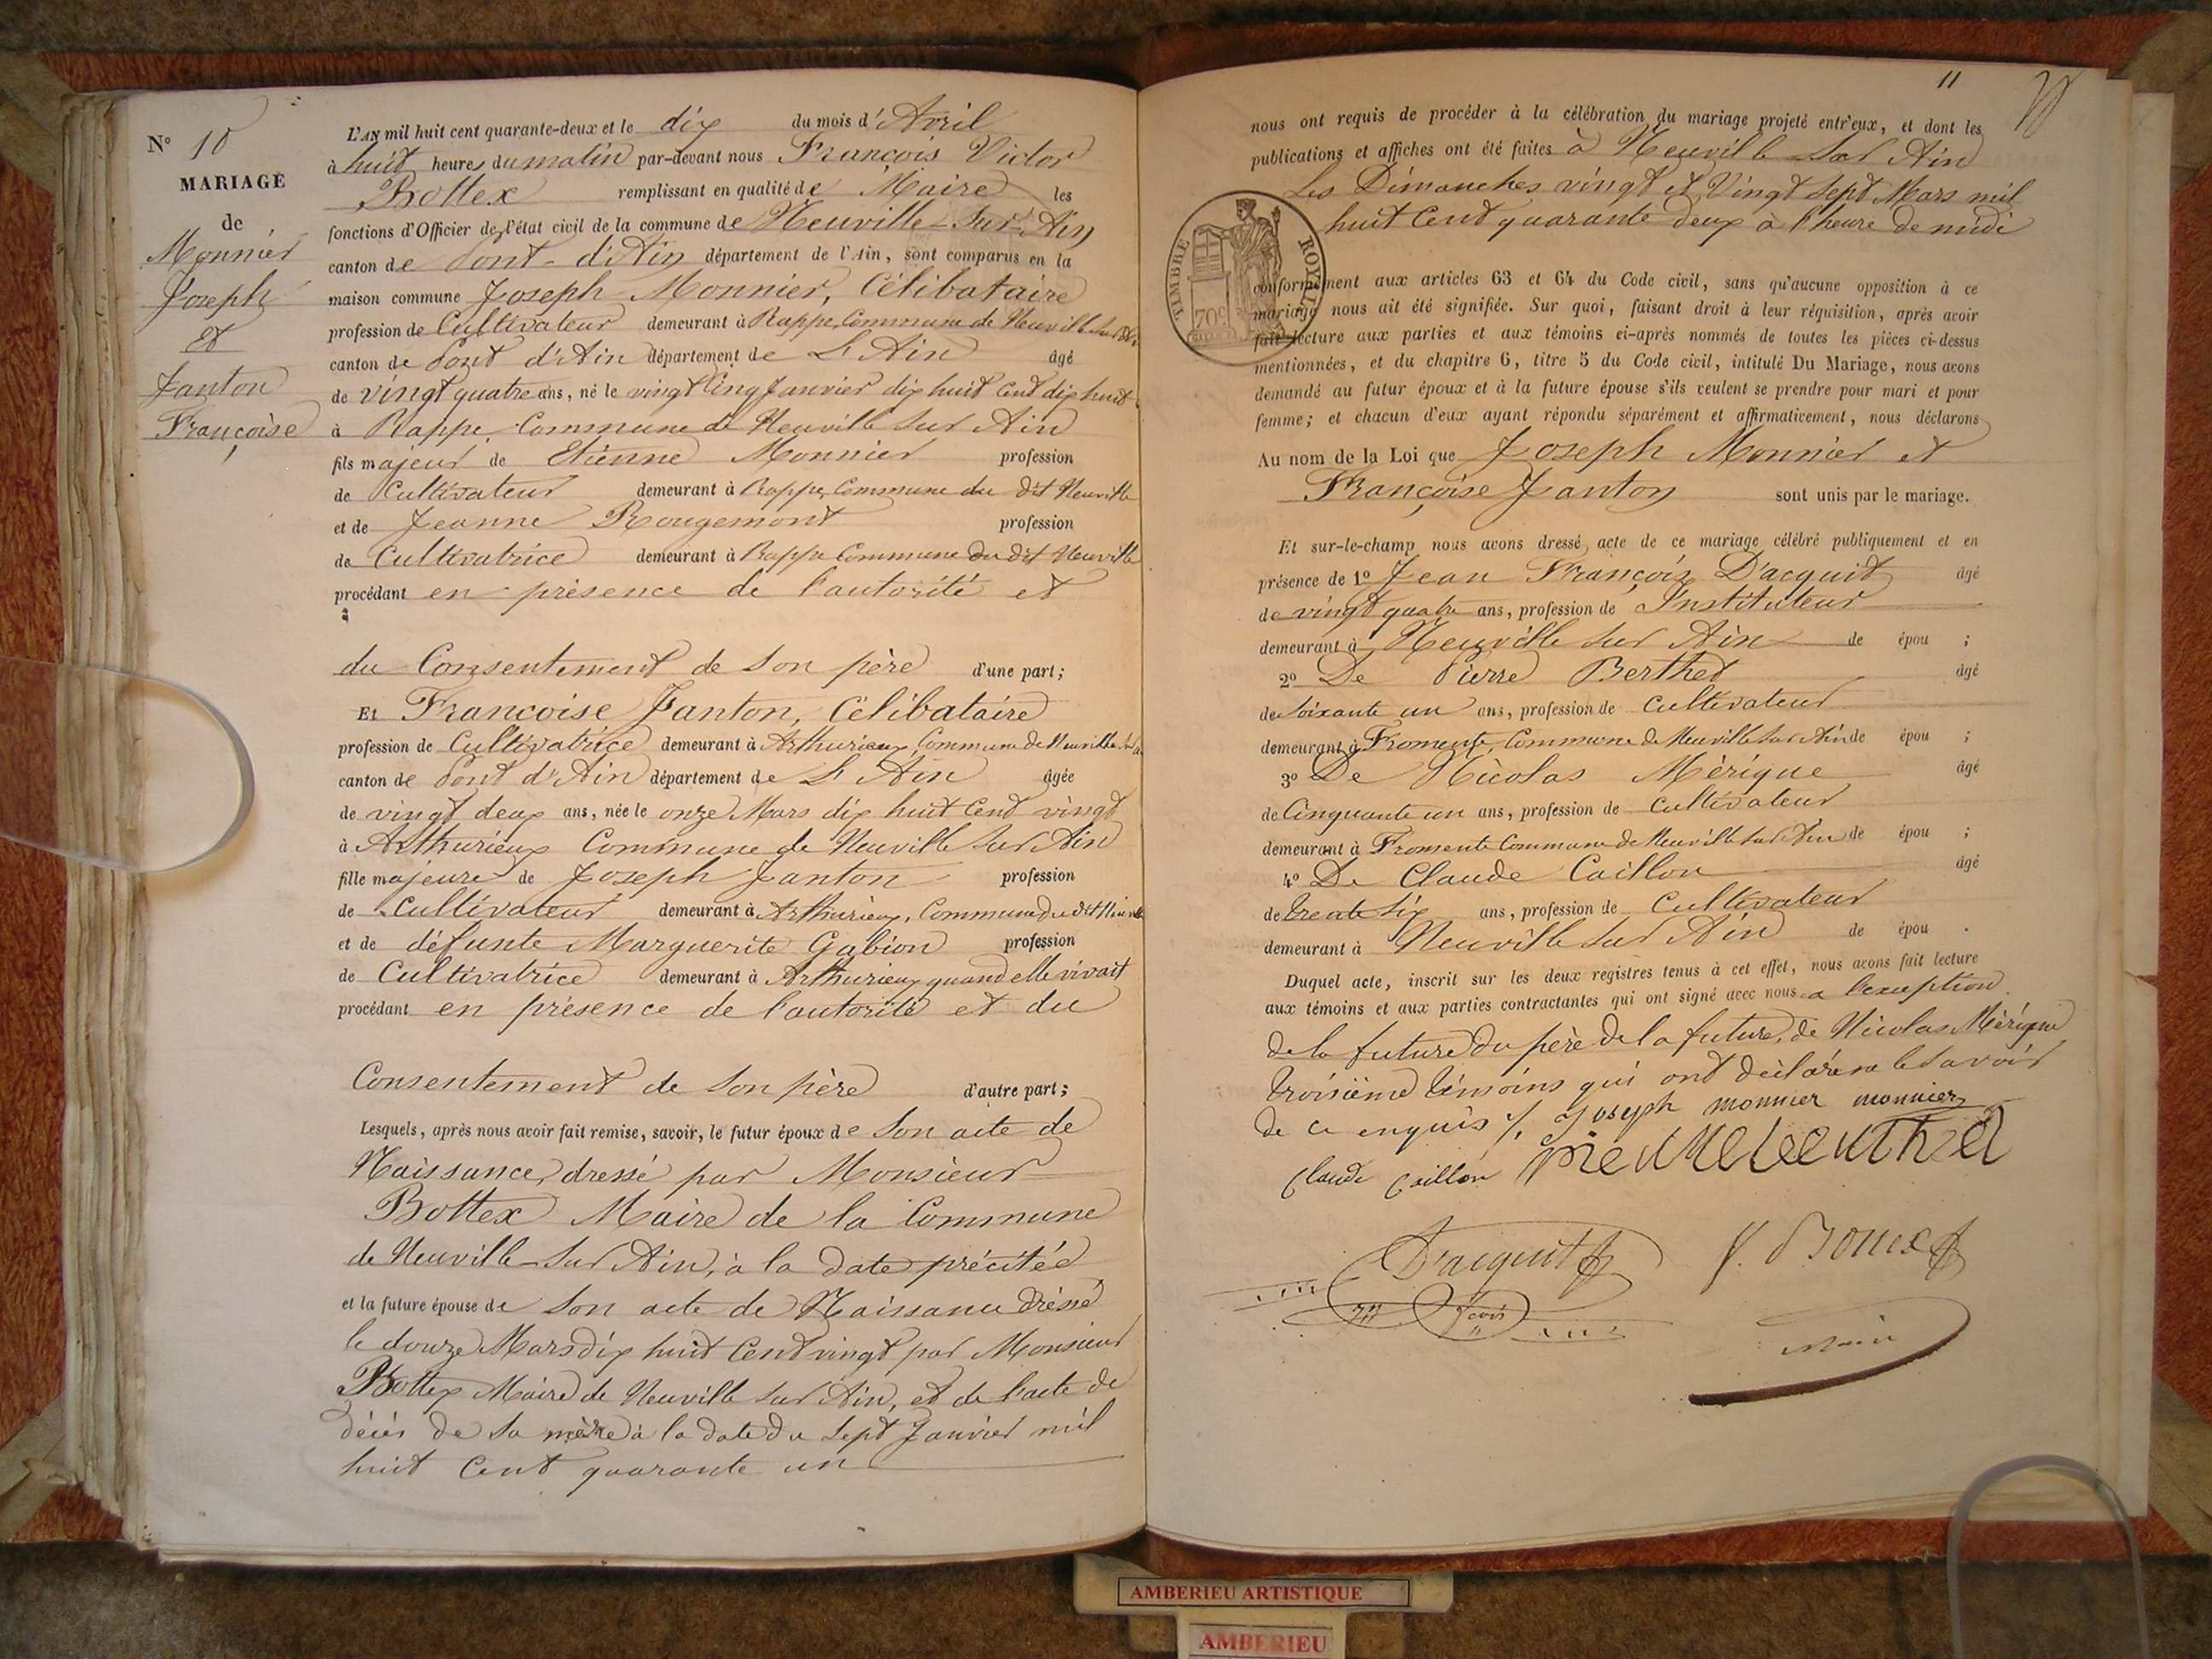 N° 10
MARIAGE
de
Monnier
Joseph
et
Janton
Françoise
L'AN mil huit cent quarante-deux et le dix du mois d'Avril
à huit heures du matin par-devant nous François Victor
Bottex remplissant en qualité de Maire les
fonctions d'Officier de l'état civil de la commune de Neuville-Sur-Ain
canton de Pont-d'Ain département de l'Ain, sont comparus en la
maison commune Joseph Monnier, Célibataire
profession de Cultivateur demeurant à Rappe, Commune de Neuville sur Ain
canton de Pont d'Ain département de L'Ain âgé
de vingt quatre ans, né le vingt Cinq Janvier dix huit Cent dix huit
à Rappe, Commune de Neuville sur Ain
fils majeur de Etienne Monnier profession
de Cultivateur demeurant à Rappe, Commune du dit Neuville
et de Jeanne Rougemont profession
de Cultivatrice demeurant à Rappe Commune du dit Neuville
procédant en présence de l'autorité et
du Consentement de son père d'une part;
Et Françoise Janton, Célibataire
profession de Cultivatrice demeurant à Arthurieux, Commune de Neuville sur Ain
canton de Pont d'Ain département de L'Ain âgée
de vingt deux ans, née le onze Mars dix huit Cent vingt
à Arthurieux Commune de Neuville sur Ain
fille majeure de Joseph Janton profession
de Cultivateur demeurant à Arthurieux, Commune du dit Neuville
et de défunte Marguerite Gabion profession
de Cultivatrice demeurant à Arthurieux quand elle vivait
procédant en présence de l'autorité et du
Consentement de son père d'autre part;
Lesquels, après nous avoir fait remise, savoir, le futur époux de son acte de
Naissance, dressé par Monsieur
Bottex Maire de la Commune
de Neuville-sur Ain, à la date précitée
et la future épouse de son acte de Naissance dressé
le douze Mars dix huit Cent vingt par Monsieur
Bottex Maire de Neuville sur Ain, et de l'acte de
décés de sa mère à la date du sept Janvier mil
huit Cent quarante un
11
nous ont requis de procéder à la célébration du mariage projeté entr'eux, et dont les
publications et affiches ont été faites à Neuville sur Ain
Les Dimanches vingt et Vingt sept Mars mil
huit Cent quarante deux à l'heure de midi
TIMBRE ROYAL
70c
conformément aux articles 63 et 64 du Code civil, sans qu'aucune opposition à ce
mariage nous ait été signifiée. Sur quoi, faisant droit à leur réquisition, après avoir
fait lecture aux parties et aux témoins ci-après nommés de toutes les pièces ci-dessus
mentionnées, et du chapitre 6, titre 5 du Code civil, intitulé Du Mariage, nous avons
demandé au futur époux et à la future épouse s'ils veulent se prendre pour mari et pour
femme; et chacun d'eux ayant répondu séparément et affirmativement, nous déclarons
Au nom de la Loi que Joseph Monnier et
Françoise Janton sont unis par le mariage.
Et sur-le-champ nous avons dressé acte de ce mariage célébré publiquement et en
présence de 1° Jean François D'acquit âgé
de vingt quatre ans, profession de Instituteur
demeurant à Neuville sur Ain de épou ;
2° De Pierre Berthet âgé
de soixante un ans, profession de Cultivateur
demeurant à Fromente, Commune de Neuville sur Ain de épou ;
3° De Nicolas Mérique âgé
de Cinquante un ans, profession de Cultivateur
demeurant à Fromente Commune de Neuville sur Ain de épou ;
4° De Claude Caillon âgé
de trente six ans, profession de Cultivateur
demeurant à Neuville sur Ain de épou .
Duquel acte, inscrit sur les deux registres tenus à cet effet, nous avons fait lecture
aux témoins et aux parties contractantes qui ont signé avec nous à l'exception
de la future du père de la future, de Nicolas Mérique
troisième témoins qui ont déclaré ne le savoir
de ce enquis ./. Joseph monnier monnier
Claude Caillon pierre berthet
D'acquit
V. Bottex
Maire
AMBERIEU ARTISTIQUE
AMBERIEU